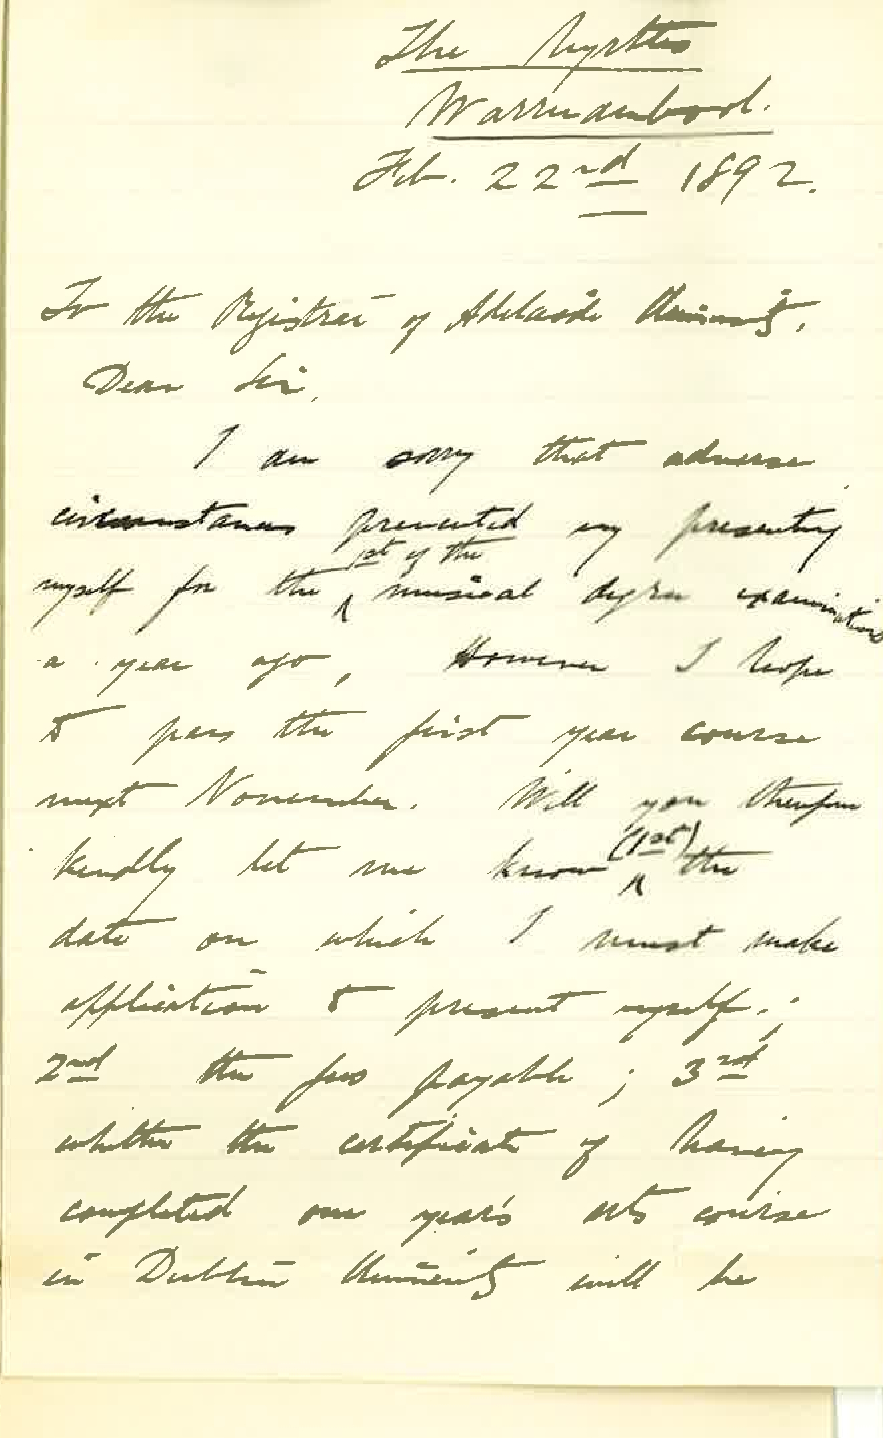 The Myrtles
Warrnambool.
Feb. 22nd 1892.
To the Registrar of Adelaide University,
Dear Sir,
I am sorry that adverse
circumstances prevented my presenting
myself for the 1st of the musical degree examinations
a year ago, However I hope
to pass the first year course
next November. Will you therefore
kindly let me know (1st) the
date on which I must make
application to present myself.;
2nd the fees payable; 3rd
whether the certificate of having
completed one year's arts course
in Dublin University will be